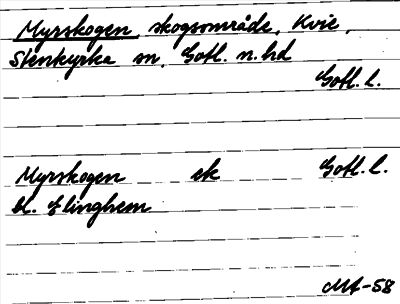 Myrskogen, skogsområde, Kvie,
Stenkyrka sn, Gotl. n. hd
Gotl. l.
Myrskogen sk Gotl. l.
bl. Elinghem
MA-58